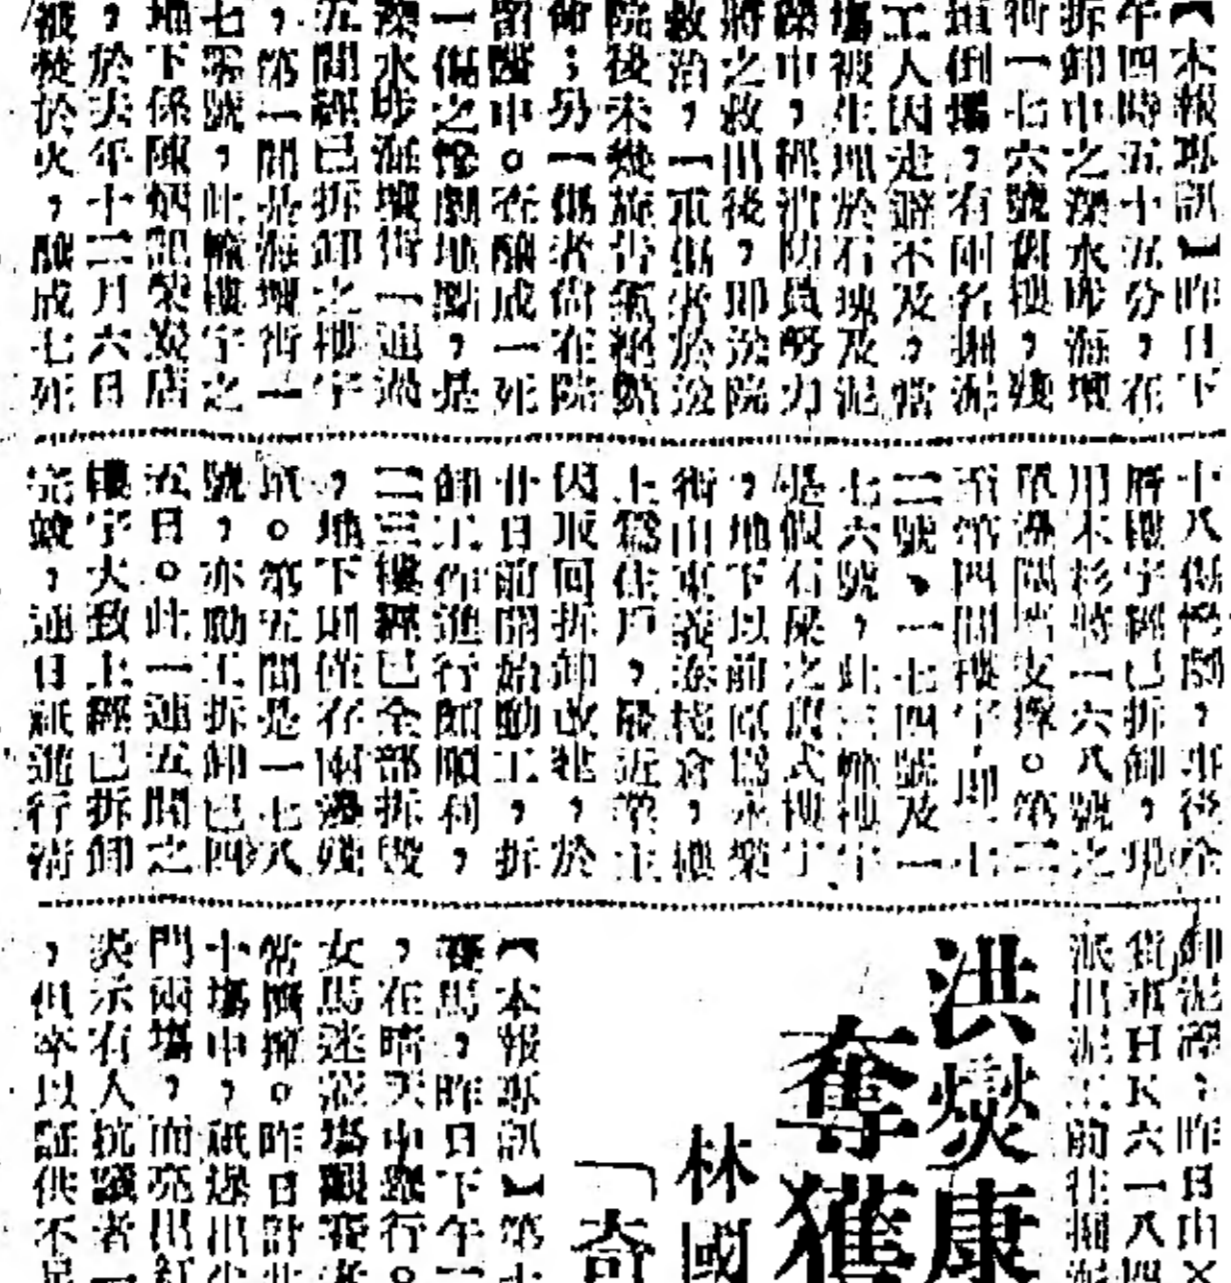 【本報專訊】昨日下
午四時五十五分，在
拆卸中之深水埗海壇
街一七六號舊樓，殘
垣倒塌，有兩名掘泥
工人因走避不及，當
塲被生埋於石塊及泥
礫中，經消防員努力
將之救出後，即送院
救治，一重傷者於送
院後未幾旋告氣絕斃
命；另一傷者尚在院
留醫中。查釀成一死
一傷之慘劇地點，是
深水埗海壇街一連過
五間經已拆卸之樓宇
，第一間是海壇街一
七零號，此幢樓宇之
地下係陳炳記榮炭店
，於去年十二月六日
被焚於火，釀成七死
十八傷慘劇，事後全
層樓宇經已拆卸，現
用木杉將一六八號之
單邊隔牆支撐。第二
至第四間樓宇，即一七
二號、一七四號及一
七六號，此三幢樓宇
是假石屎之舊式樓宇
，地下以前原為永樂
街山東義泰棧倉，樓
上爲住戶，最近業主
因取回拆卸改建，於
廿日前開始動工，拆
卸工作進行頗順利，
二三樓經已全部拆毀
，地下則僅存兩邊殘
垣。第五間是一七八
號，亦動工拆卸已四
五日。此一連五間之
樓宇大致上經已拆卸
完竣，連日祇進行清
卸泥磚，昨日由×
貨車HK六一八四
派出泥工前往掘泥
洪爕康
奪獲
林國
「奇
【本報專訊】第十
賽馬，昨日下午一
，在晴天中舉行。
女馬迷蒞塲觀賽者
常擠擁。昨日計共
十塲中，祇爆出少
門兩塲，而亮出紅
表示有人抗議者一
，但卒以証供不足